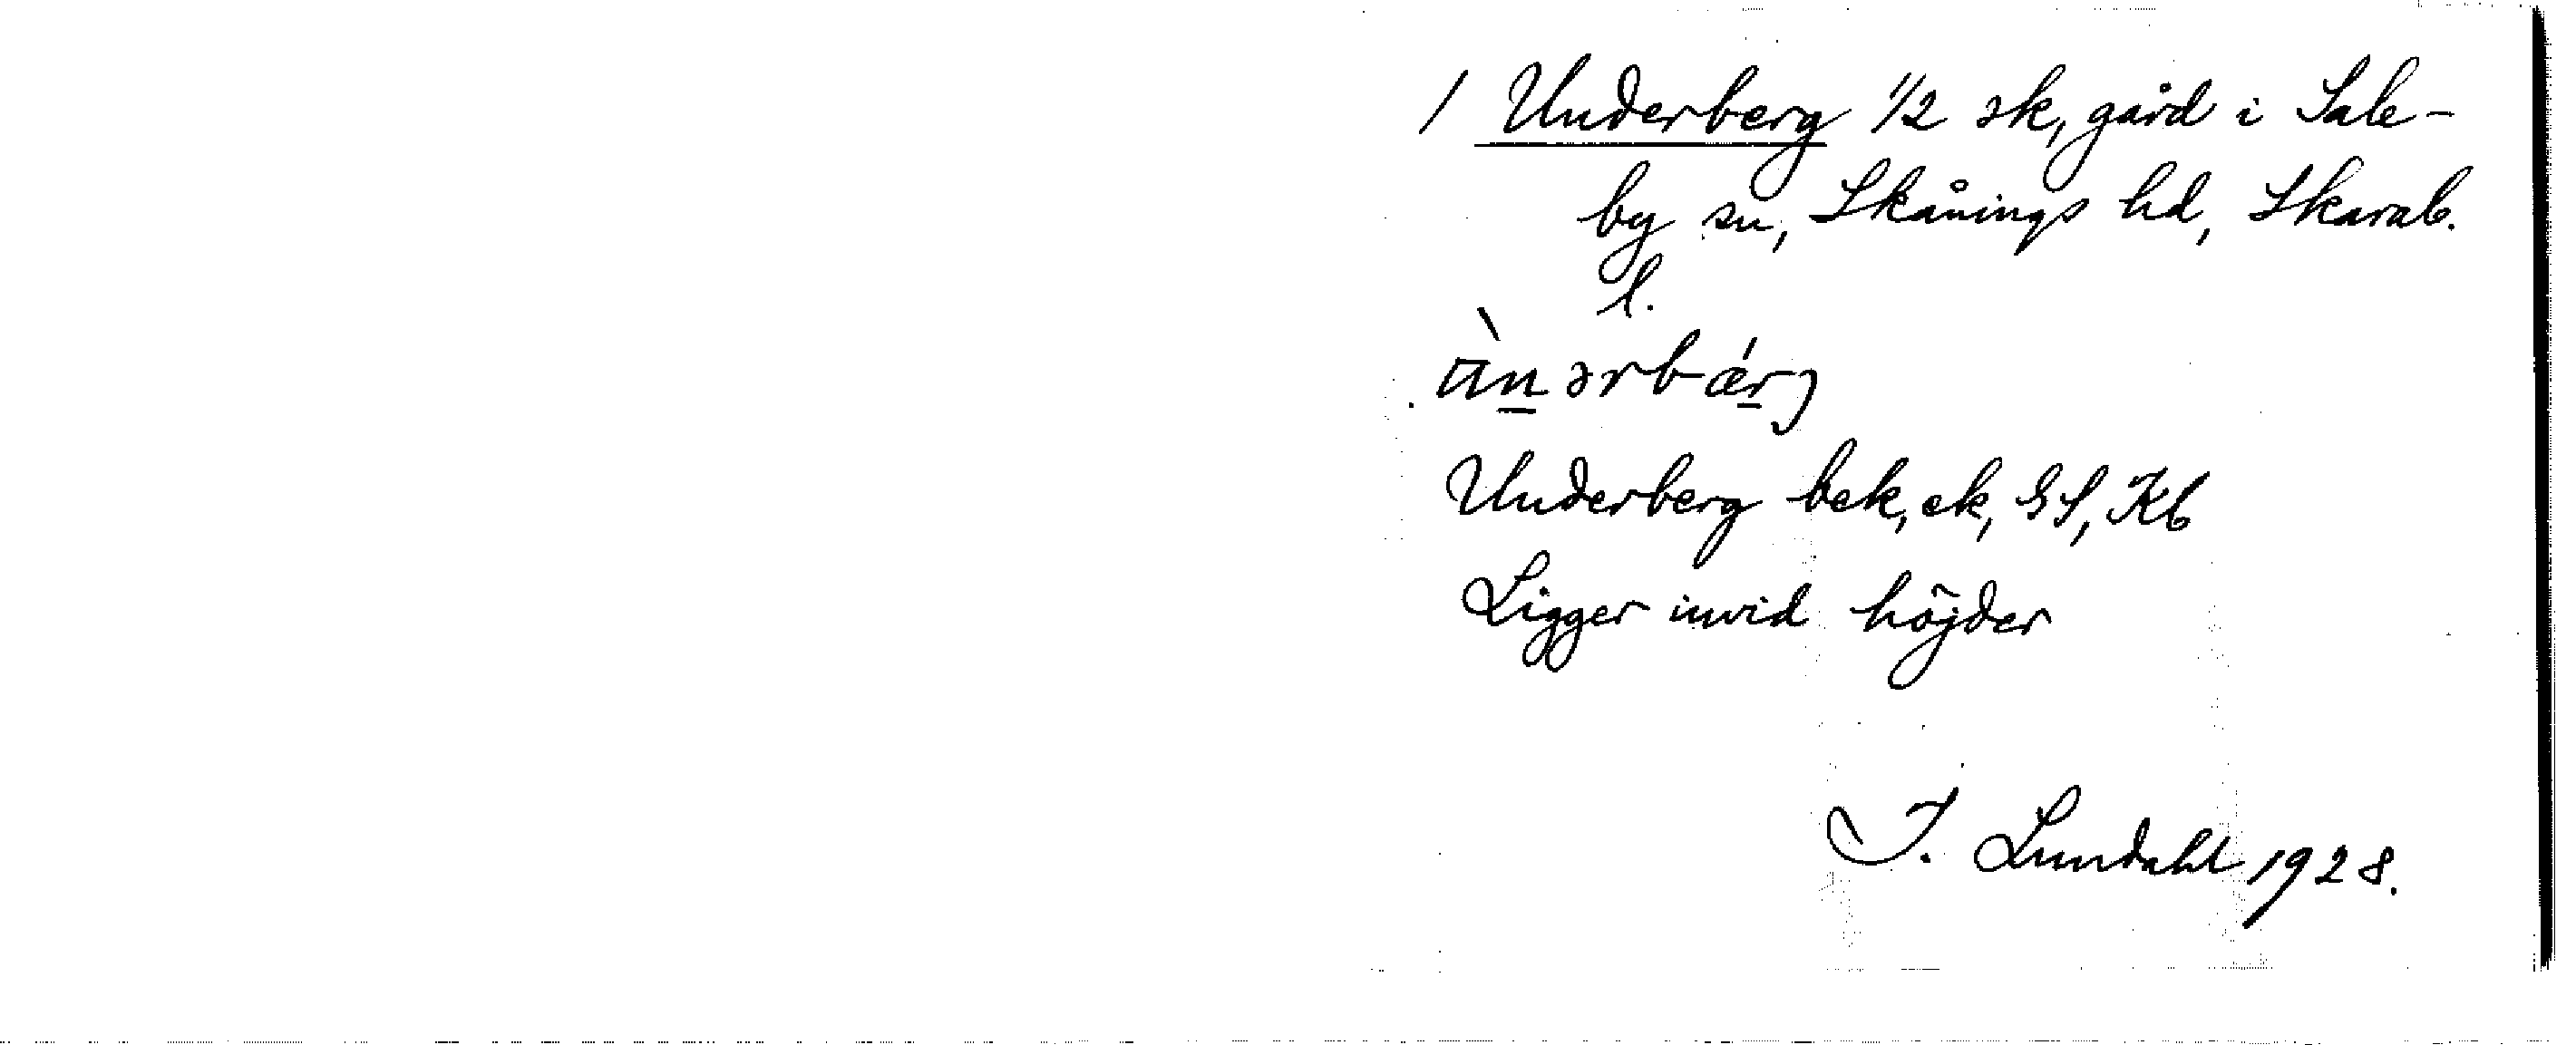 / Underberg 1/2 sk, gård i Sale-
by sn, Skånings hd, Skarab.
l.
ànərbǽrj
Underberg bek, ek, GS, Kb
Ligger invid höjder
I. Lundahl 1928.